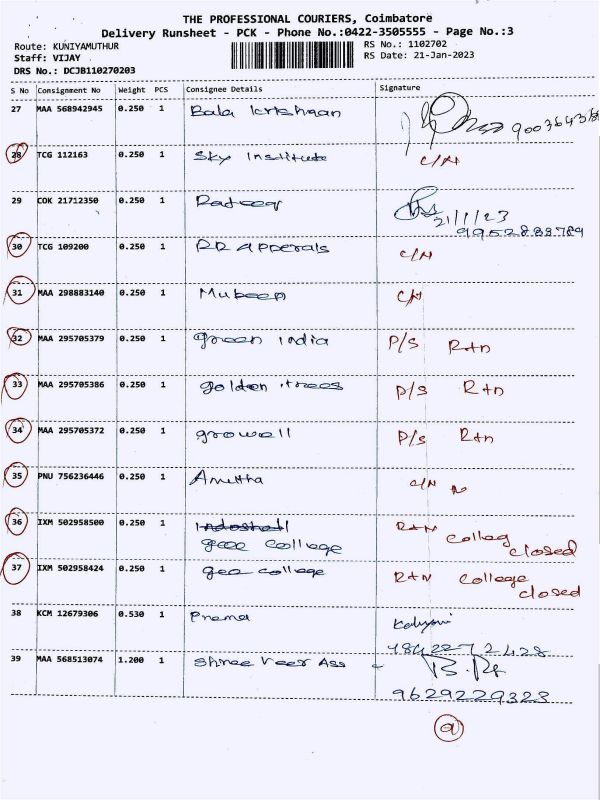 THE PROFESSIONAL COURIERS, Coimbatore
Delivery Runsheet - PCK - Phone No.:0422-3505555 - Page No.:3
Route: KUNIYAMUTHUR RS No.: 1102702
Staff: VIJAY RS Date: 21-Jan-2023
DRS No.: DCJB110270203
S No Consignment No Weight PCS Consignee Details Signature
27 MAA 568942945 0.250 1 Bala krishnan
28 TCG 112163 0.250 1 Sky Institute C/N
29 COK 21712350 0.250 1 21/1/23
9952888789
30 TCG 109200 0.250 1 RR Apperals C/N
31 MAA 298883140 0.250 1 Mubeen C/N
32 MAA 295705379 0.250 1 green india P/S Rtn
33 MAA 295705386 0.250 1 golden trees P/S Rtn
34 MAA 295705372 0.250 1 growell P/S Rtn
35 PNU 756236446 0.250 1 C/N
36 IXM 502958500 0.250 1 Indoshell Rtn colleg closed
gcee college
37 IXM 502958424 0.250 1 gce college Rtn college closed
38 KCM 12679306 0.530 1 Prema Kalyani
39 MAA 568513074 1.200 1 Shree Veer Ass
9629229323
a